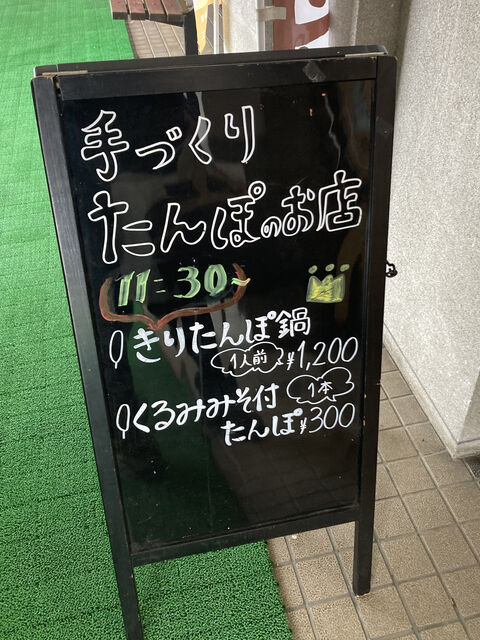 手づくり
たんぽのお店
11:30~
きりたんぽ鍋
1人前 ¥1,200
くるみみそ付 1本
たんぽ ¥300